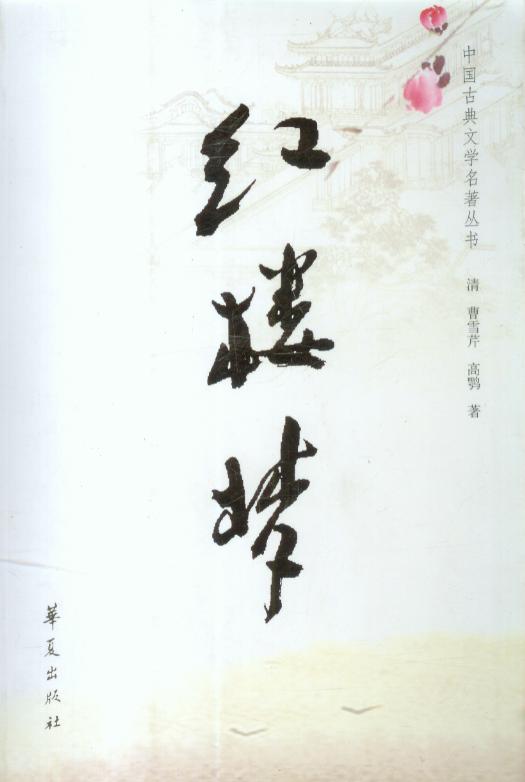 中国古典文学名著丛书
清 曹雪芹 高鹗 著
红楼梦
華夏出版社